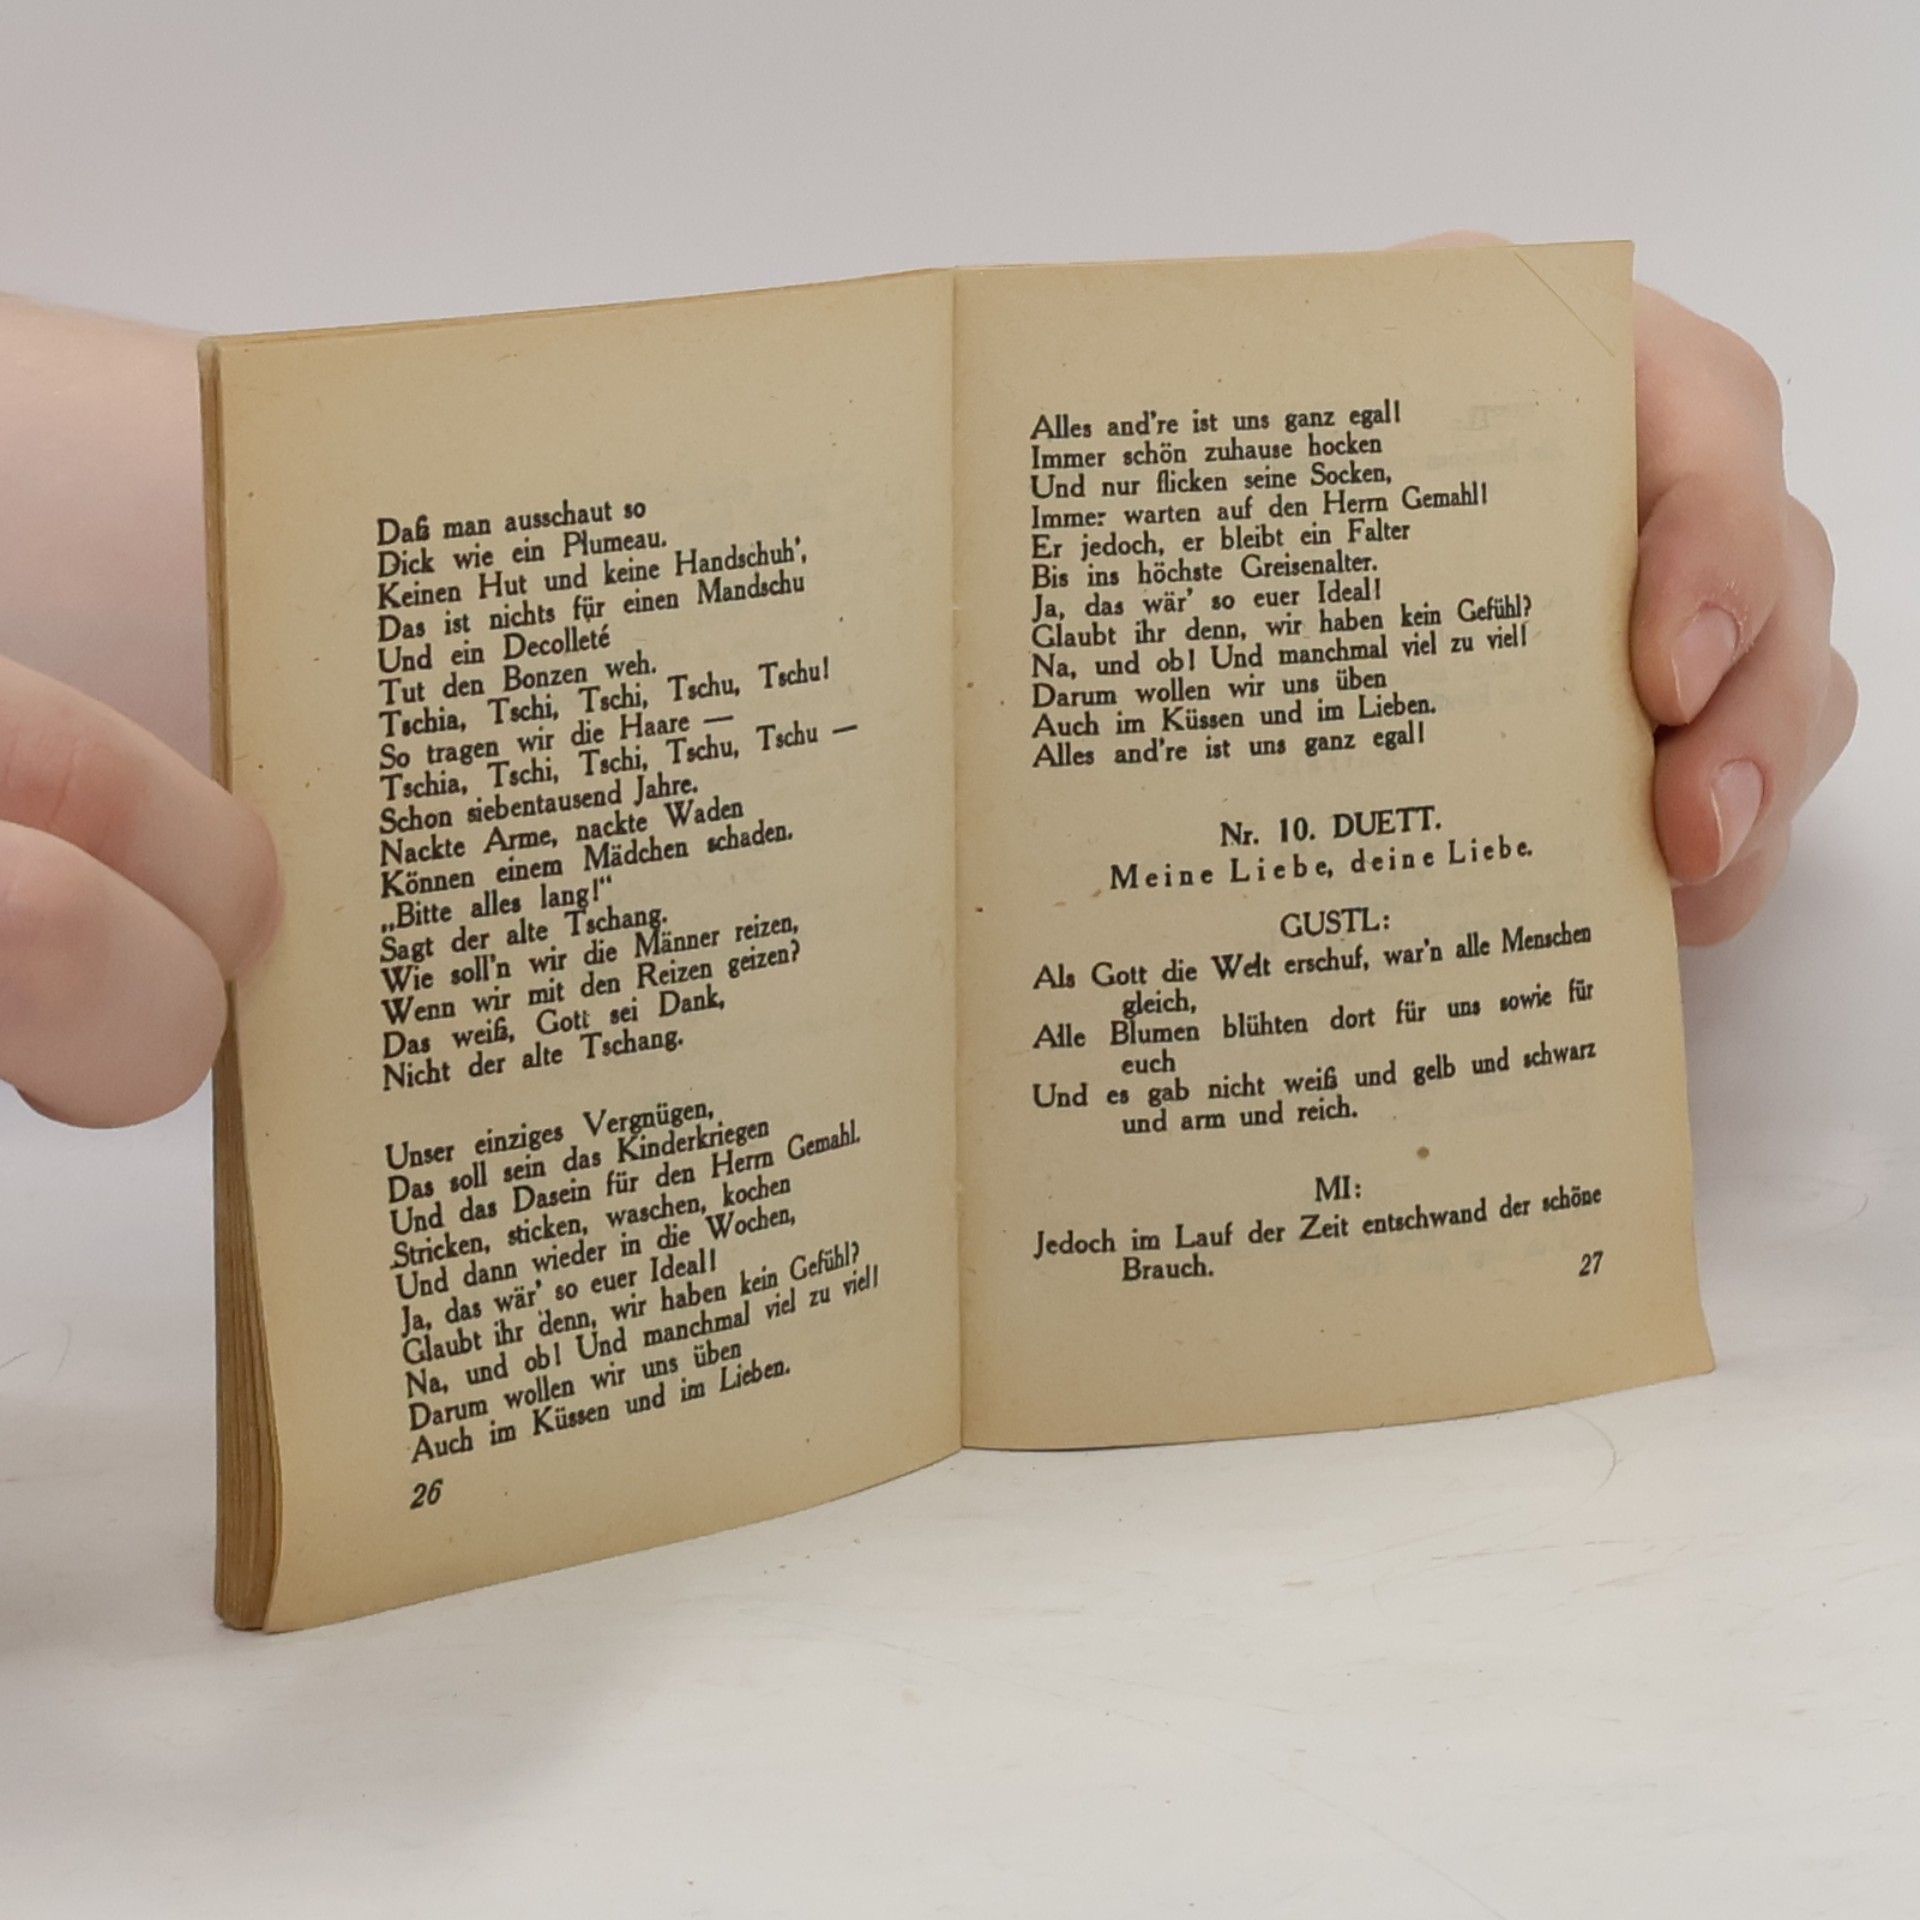 Daß man ausschaut so
Dick wie ein Plumeau.
Keinen Hut und keine Handschuh',
Das ist nichts für einen Mandschu
Und ein Decolleté
Tut den Bonzen weh.
Tschia, Tschi, Tschi, Tschu, Tschu!
So tragen wir die Haare —
Tschia, Tschi, Tschi, Tschu, Tschu —
Schon siebentausend Jahre.
Nackte Arme, nackte Waden
Können einem Mädchen schaden.
„Bitte alles lang!“
Sagt der alte Tschang.
Wie soll'n wir die Männer reizen,
Wenn wir mit den Reizen geizen?
Das weiß, Gott sei Dank,
Nicht der alte Tschang.
Unser einziges Vergnügen,
Das soll sein das Kinderkriegen
Und das Dasein für den Herrn Gemahl.
Stricken, sticken, waschen, kochen
Und dann wieder in die Wochen,
Ja, das wär' so euer Ideal!
Glaubt ihr denn, wir haben kein Gefühl?
Na, und ob! Und manchmal viel zu viel!
Darum wollen wir uns üben
Auch im Küssen und im Lieben.
26
Alles and're ist uns ganz egal!
Immer schön zuhause hocken
Und nur flicken seine Socken,
Immer warten auf den Herrn Gemahl!
Er jedoch, er bleibt ein Falter
Bis ins höchste Greisenalter.
Ja, das wär' so euer Ideal!
Glaubt ihr denn, wir haben kein Gefühl?
Na, und ob! Und manchmal viel zu viel!
Darum wollen wir uns üben
Auch im Küssen und im Lieben.
Alles and're ist uns ganz egal!
Nr. 10. DUETT.
Meine Liebe, deine Liebe.
GUSTL:
Als Gott die Welt erschuf, war'n alle Menschen
gleich,
Alle Blumen blühten dort für uns sowie für
euch
Und es gab nicht weiß und gelb und schwarz
und arm und reich.
MI:
Jedoch im Lauf der Zeit entschwand der schöne
Brauch.
27